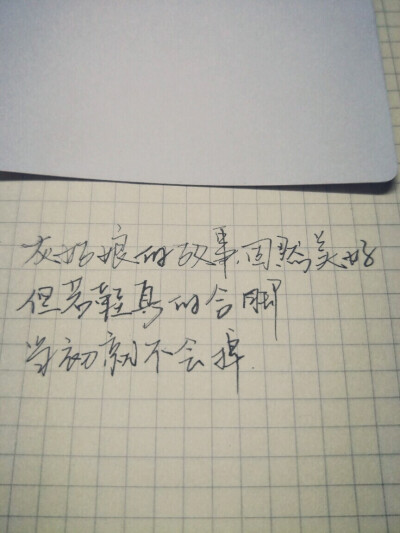 灰姑娘的故事,固然美好
但若鞋真的合脚
当初就不会掉.